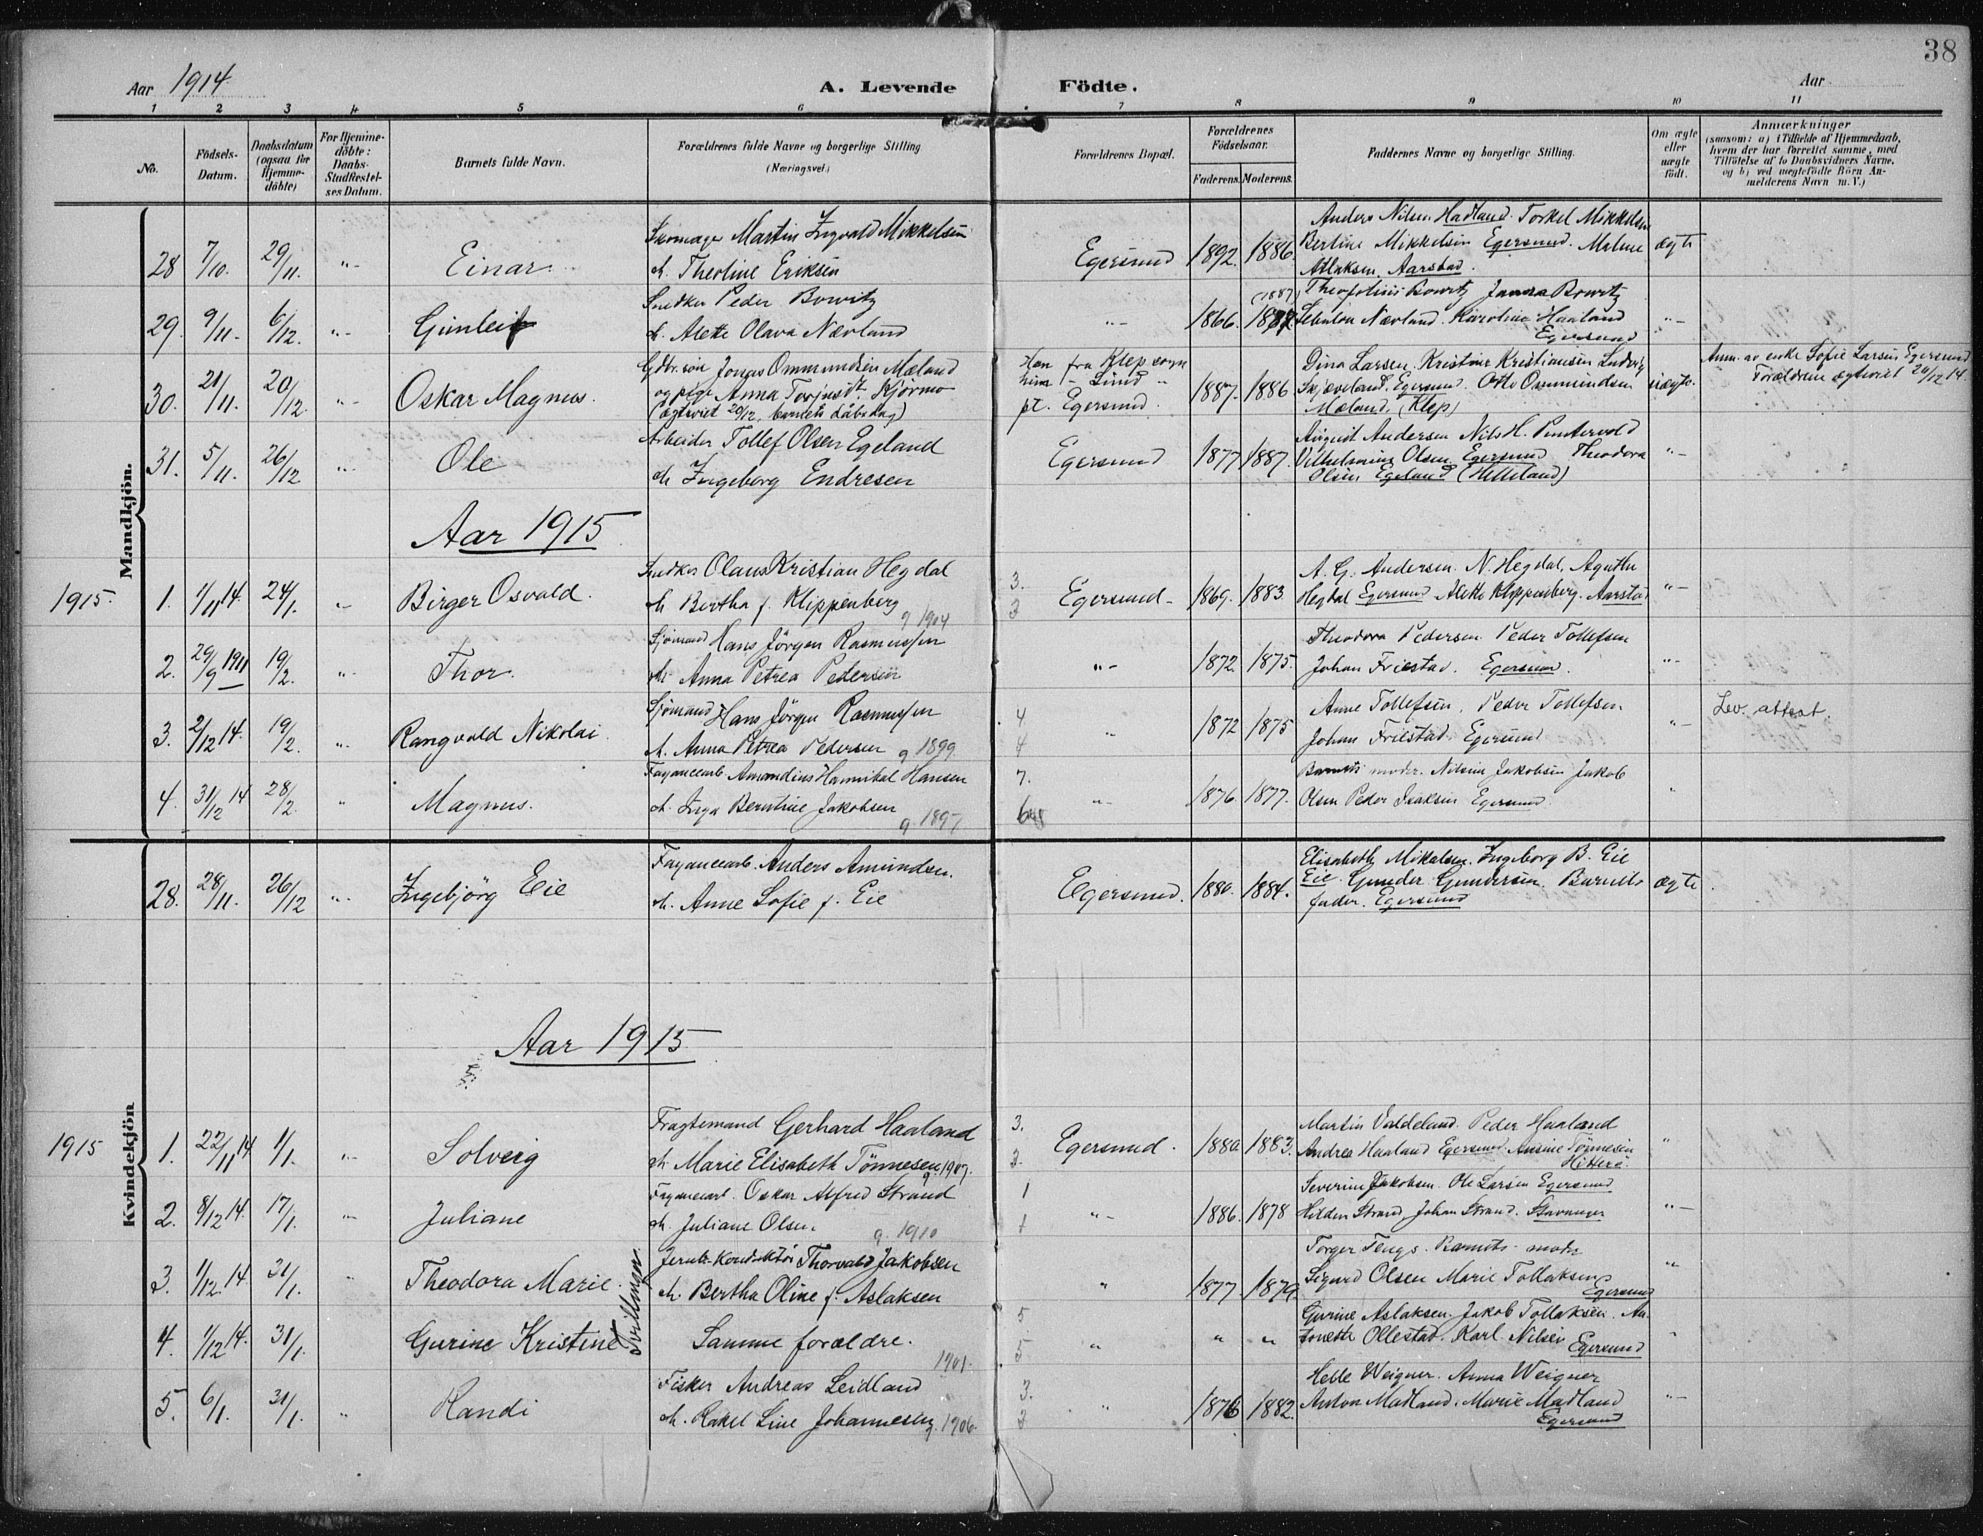 38
Aar 1914. A. Levende Födte. Aar
1 2 3 4 5 6 7 8 9 10 11
No.
Födsels-Datum.
Daabsdatum (ogsaa for Hjemme-döbte)
For Hjemme-döbte: Daabs-Stadfæstel-ses Datum.
Barnets fulde Navn.
Forældrenes fulde Navne og borgerlige Stilling (Næringsvei.)
Forældrenes Bopæl.
Forældrenes Födselsaar.
Faderens. Moderens.
Faddernes Navne og borgerlige Stilling.
Om ægte eller uægte födt.
Anmærkninger
(saasom: a) i Tilfælde af Hjemmedaab,
hvem der har forrettet samme, med
Tilföielse af to Daabsvidners Navne,
og b) ved uægtefödte Börn An-
melderens Navn m. V.)
Mandkjön.
28 7/10. 29/11. "- Einar.
Skomager Martin Ingvald Mikkelsen
h. Theoline Eriksen
Egersund 1892. 1886.
Anders Nilsen Hadland. Torkel Mikkelsen
Bertine Mikkelsen Egersund. Malene
Aslaksen. Aarstad.
ægte
29. 9/11. 6/12. "- Gunleif
Snedker Peder Bowitz
h. Alette Olava Nævland
"- 1866. (1887)
Theofolius Bowitz Janna Bowitz
Nævland. Karoline Haaland
Egersund
"-
30. 21/11. 20/12. "- Oskar Magnus.
Gdbr. søn Jonas Ommundsen Mæland
og pige Anna Torjusdt. Kjørmo
(ægteviet 20/12, barnets dåbsdag)
Han fra Klep sogn
hun - Lund "
pt. Egersund.
1887. 1886
Dina Larsen, Kristine Kristiansen Ludvig
Skjeveland Egersund. Otto Ommundsen
Mæland. (Klep)
uægte.
Anm. av enke Sofie Larsen Egersund
Forældrene ægteviet 20/12 14.
31. 5/11. 26/12 "- Ole
Arbeider Tollef Olsen Egeland
h. Ingeborg Endresen
Egersund 1877 1887.
August Andersen Nils H. Puntervold
Vilhelmine Olsen Egersund Theodora
Olsen Egeland (Helleland)
"-
Aar 1915
1915. 1. 1/11 14. 24/1. "- Birger Osvald.
Snedker Olaus Kristian Hegdal
h. Bertha f. Klippenberg
g 1904
3.
3
Egersund - 1869. 1883.
A. G. Andersen. N. Hegdal, Agathe
Hegdal Egersund Alette Klippenberg. Aarstad
"-
2. 29/9 1911 19/2. "- Thor.
Sjømand Hans Jörgen Rasmussen
h. Anna Petrea Pedersen
"- 1872. 1875.
Theodora Pedersen. Peder Tollefsen
Johan Friestad. Egersund.
"-
3. 2/12 14. 19/2. "- Rangvald Nikolai.
Sjømand Hans Jörgen Rasmussen
h. Anna Petrea Pedersen g 1899
4
4
" 1872 1875
Anne Tollefsen. Peder Tollefsen
Johan Friestad. Egersund
"-
Lev. attest.
4. 31/12 14 28/2. " Magnus.
Fayancearb. Amandius Hannibal Hansen
h. Inga Berntine Jakobsen
g. 1897
7.
"- 1876. 1877.
Barnets moder. Nilsine Jakobsen Jakob
Olsen Peder Isaksen Egersund.
"
28. 28/11. 26/12 "- Ingebjörg Eie
Fayancearb. Anders Amundsen.
h. Anne Sofie f. Eie
Egersund. 1880. 1884.
Elisabeth Mikalsen. Ingeborg B. Eie
Eie. Gunder Gundersen. Barnets
fader. Egersund
ægte.
Aar 1915
Kvindekjön
1915 1. 22/11 14 1/1. "- Solveig
Fragtemand Gerhard Haaland
h. Marie Elisabeth Tönnesen g 1907.
3.
3.
Egersund. 1880. 1883.
Martin Valdeland. Peder Haaland
Andrea Haaland Egersund Ansine Tønnesen
Hitterø.
"
2. 8/12 14. 17/1. "- Juliane
Fayancearb. Oskar Alfred Strand
h. Juliane Olsen.
g. 1910
1
1
"- 1886. 1878
Severine Jakobsen. Ole Larsen Egersund
Hildur Strand Johan Strand. Stavanger
"-
3. 1/12. 14 31/1. " Theodora Marie.
Tvillinger.
Jernb. Konduktør Thorvald Jakobsen
h. Bertha Oline f. Aslaksen
" 1877. 1879
Torger Tengs. Barnets moder
Sigurd Olsen Marie Tollaksen
Egersund
"
4. 1/12 14. 31/1. " Gurine Kristine
Samme forældre.
1901.
5
5.
" " "
Gurine Aslaksen. Jakob Tollaksen. An-
tonette Ollestad. Karl Nilsen
Egersund
"
5. 6/1. 31/1. " Randi
Fisker Andreas Leidland
h. Rakel Line Johannesen g. 1906.
3.
3
" 1876 1882.
Helle Weigner. Anna Weigner
Anton Madland. Marie Madland
Egersund
"-